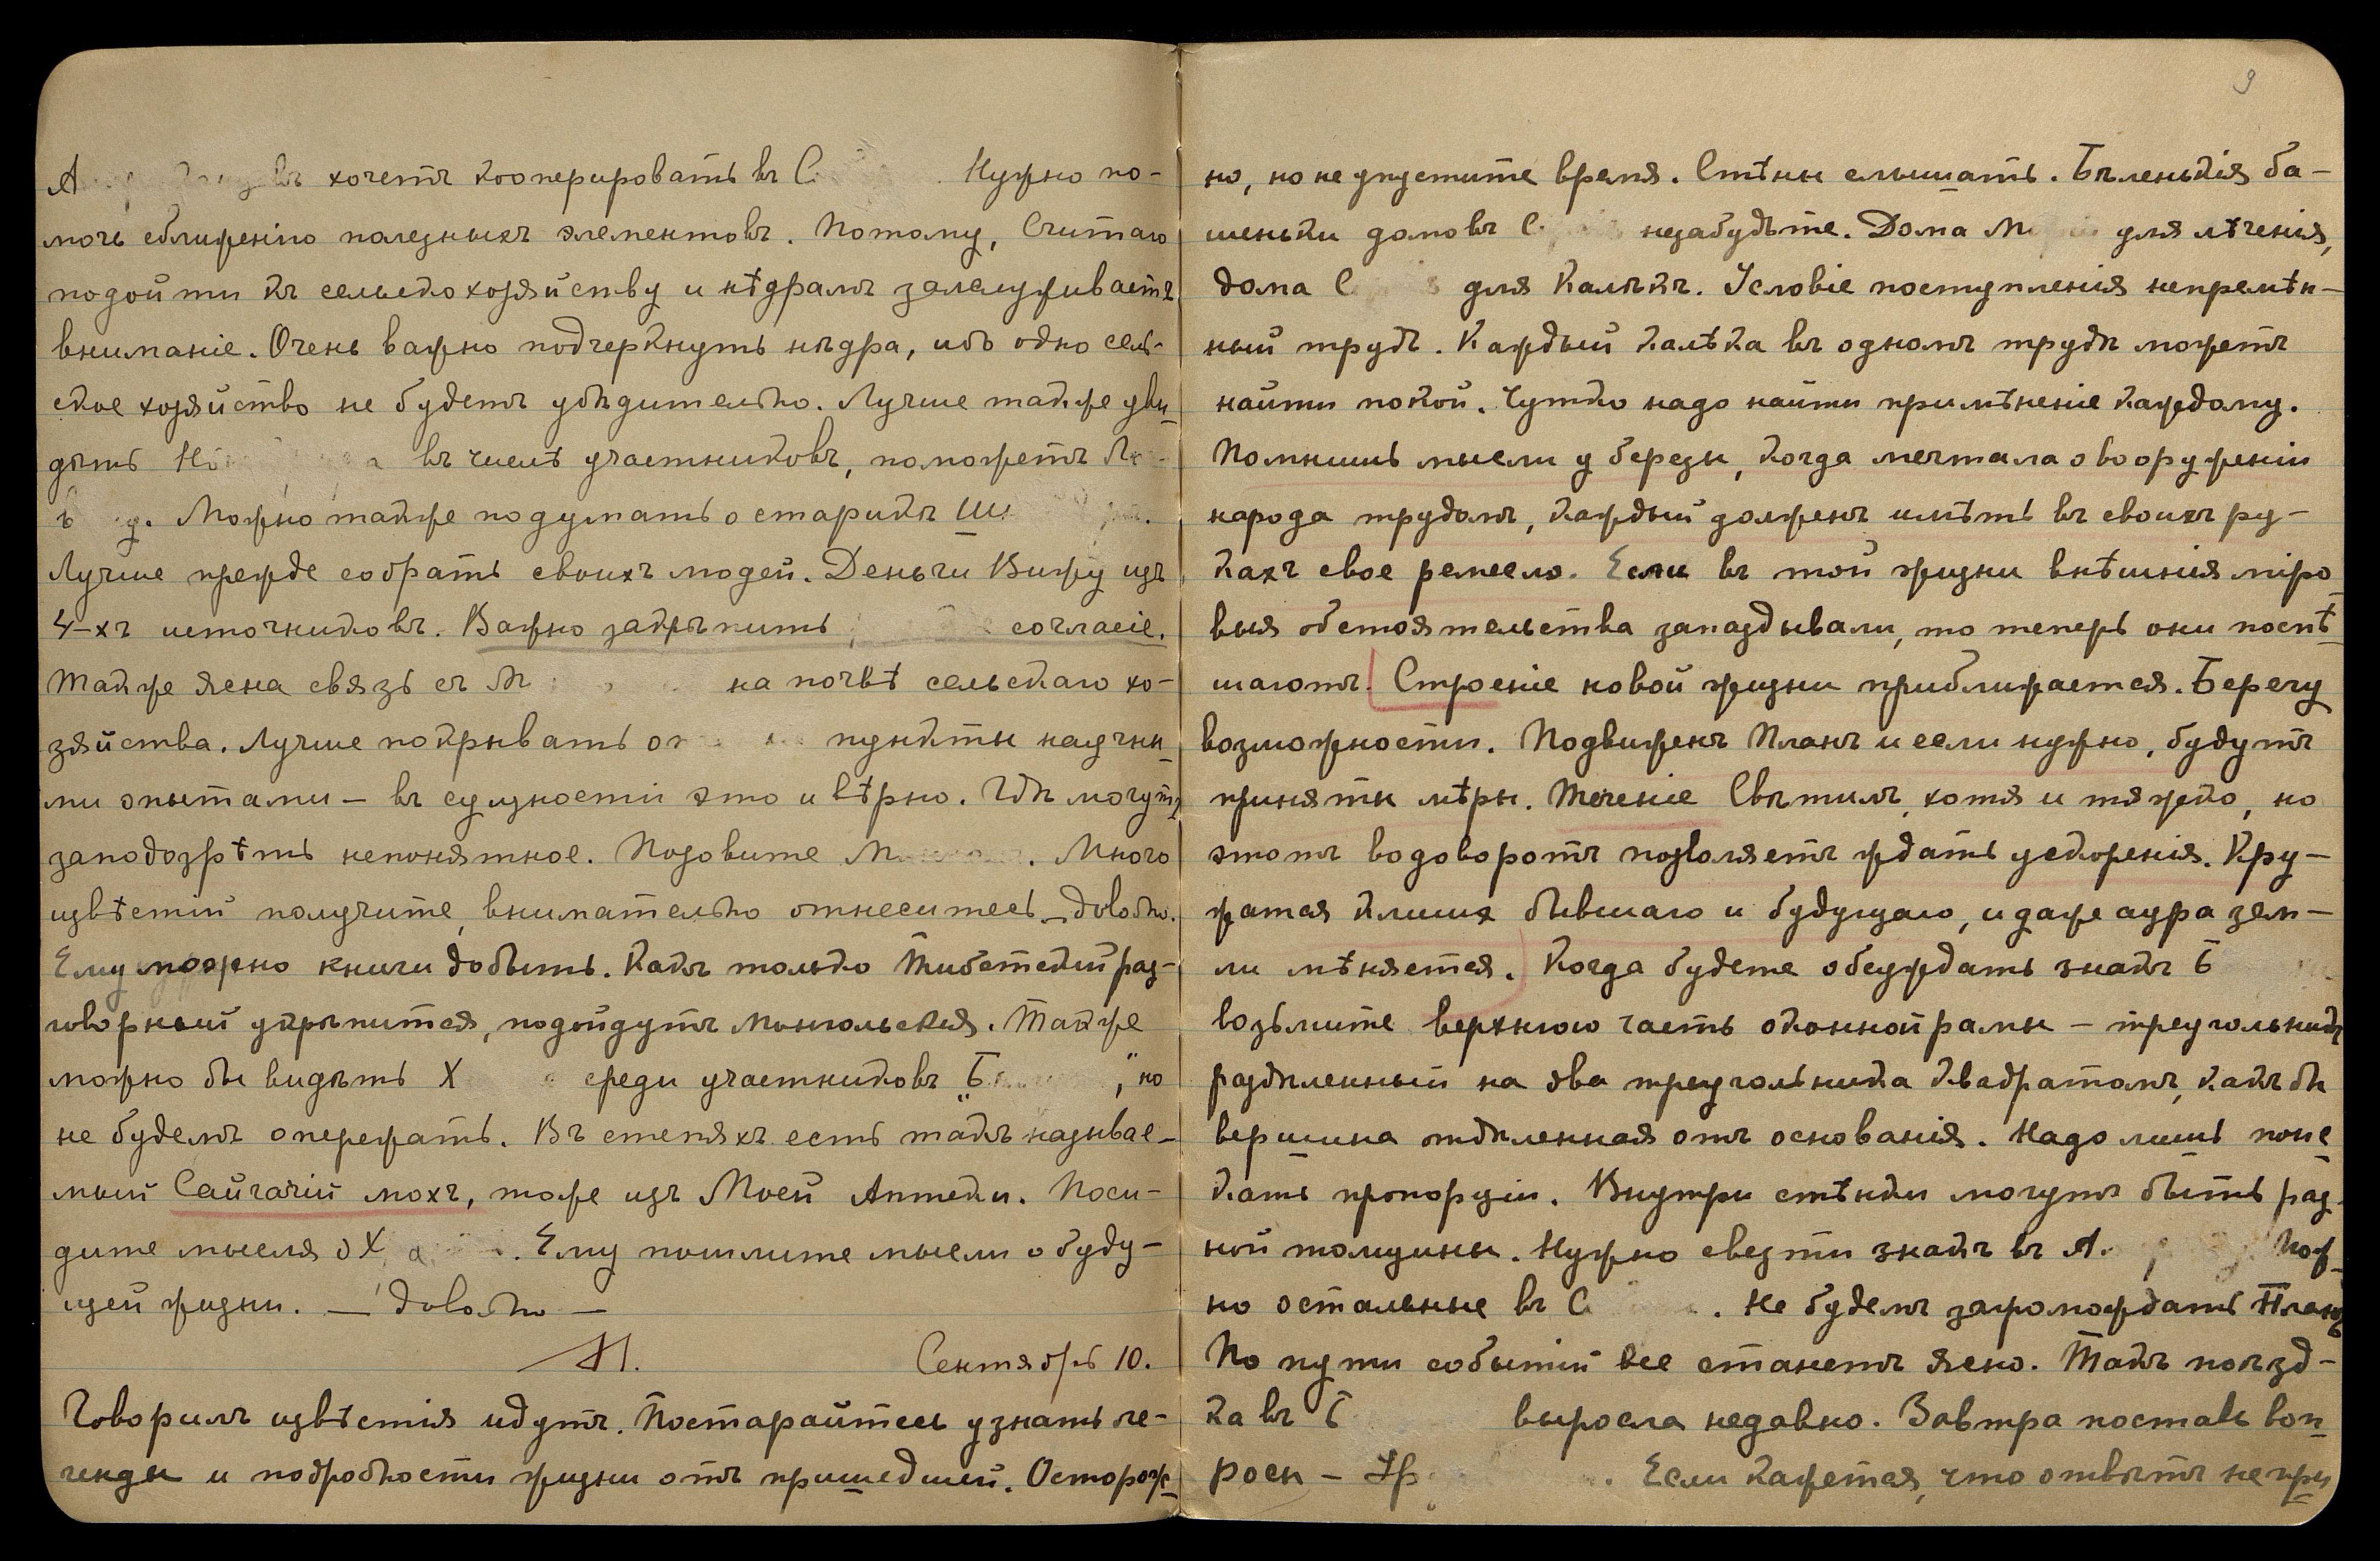 хочетъ кооперировать въ С Нужно по-
мочь сближенію полезныхъ элементовъ. Потому, Считаю
подойти къ сельскохозяйству и нѣдрамъ заслуживаетъ
вниманіе. Очень важно подчеркнуть нѣдра, ибо одно сель-
ское хозяйство не будетъ убѣдительно. Лучше также уви-
дѣть въ числѣ участниковъ, поможетъ
Можно также подумать о старикѣ Ш
Лучше прежде собрать своихъ людей. Деньги Вижу изъ
4-хъ источниковъ. Важно закрѣпить согласіе.
Также ясна связь съ М на почвѣ сельскаго хо-
зяйства. Лучше покрывать пункты научны-
ми опытами – въ сущности это и вѣрно. Гдѣ могутъ
заподозрѣть непонятное. Позовите М Много
извѣстій получите, внимательно отнеситесь – довольно.
Ему можно книги добыть. Какъ только Тибетскій раз-
говорный укрѣпится, подойдутъ Монгольскія. Также
можно бы видѣть Х среди участниковъ „Б", но
не будемъ опережать. Въ степяхъ есть такъ называе-
мый Сайгачій мохъ, тоже изъ Моей Аптеки. Поси-
дите мысля о Х Ему пошлите мысли о буду-
щей жизни. — довольно —
Сентябрь 10.
Говорилъ извѣстія идутъ. Постарайтесь узнать ле-
генды и подробности жизни отъ пришедшей. Осторож-
9
но, но не упустите время. Стѣны слышатъ. Бѣленькія ба-
шеньки домовъ С незабудьте. Дома М для лѣченія,
дома С для Калѣкъ. Условіе поступленія непремѣн-
ный трудъ. Каждый калѣка въ одномъ трудѣ можетъ
найти покой. Чутко надо найти примѣненіе каждому.
Помнишь мысли у березы, когда мечтала о вооруженіи
народа трудомъ, каждый долженъ имѣть въ своихъ ру-
кахъ свое ремесло. Если въ той жизни внѣшнія міро-
выя обстоятельства запаздывали, то теперь они поспѣ-
шаютъ. Строеніе новой жизни приближается. Берегу
возможности. Подвиженъ Планъ и если нужно, будутъ
приняты мѣры. Теченіе Свѣтилъ, хотя и тяжко, но
этотъ водоворотъ позволяетъ ждать ускоренія. Кру-
жатся клише бывшаго и будущаго, и даже аура зем-
ли мѣняется. Когда будете обсуждать знакъ Б
возьмите верхнюю часть оконной рамы – треугольникъ
раздѣленный на два треугольника квадратомъ, какъ бы
вершина отдѣленная отъ основанія. Надо лишь поис-
кать пропорціи. Внутри стѣнки могутъ быть раз-
ной толщины. Нужно свезти знакъ въ А. Мож-
но остальные въ С. Не будемъ загромождать Планъ
По пути событій все станетъ ясно. Такъ поѣзд-
ка въ Б выросла недавно. Завтра поставь воп-
росы – Ур. Если кажется, что отвѣтъ не при